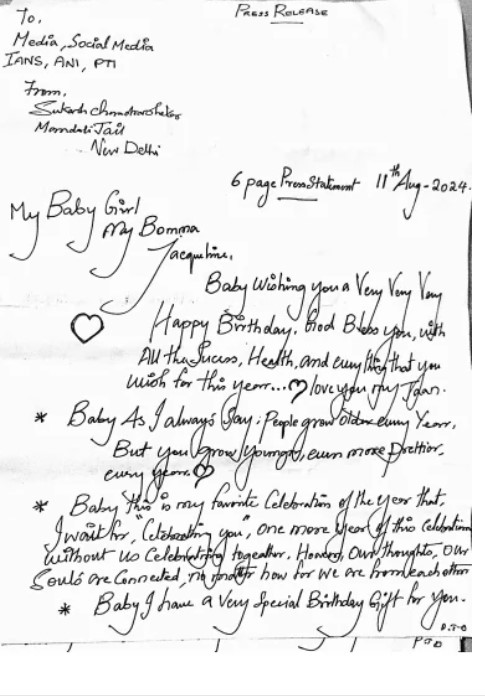 Press Release
To,
Media, Social Media
IANS, ANI, PTI
From,
Sukash Chandrashekar
Mandoli Jail
New Delhi
6 page Press Statement 11th Aug-2024.
My Baby Girl
My Bomma
Jacqueline,
Baby Wishing you a Very Very Very
Happy Birthday. God Bless you, with
All the Success, Health, and everything that you
wish for this year... love you my Jaan.
* Baby As I always Say: People grow older every Year,
But you grow Younger, even more Prettier,
every year.
* Baby this is my favorite Celebration of the Year that,
I wait for, "Celebrating you", one more year of this Celebration
without us Celebrating togeather. However, Our thoughts, Our
Souls are Connected, no matter how far we are from each other
* Baby I have a Very Special Birthday Gift for you.
P.T.O
P T O